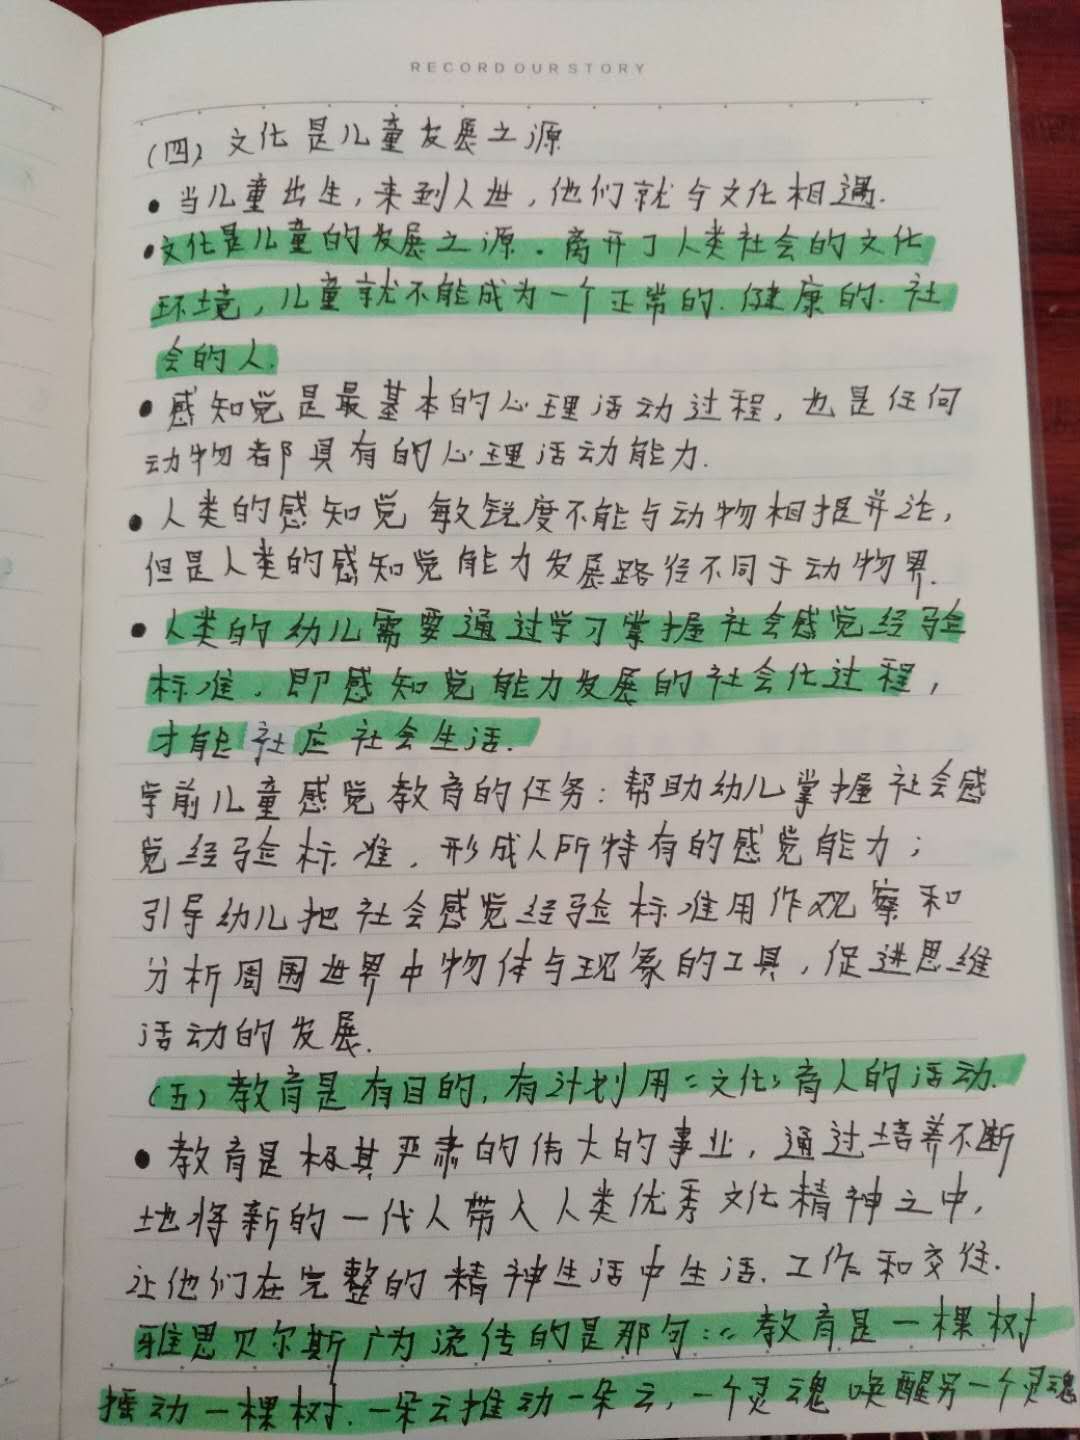 RECORD OUR STORY
（四）文化是儿童发展之源
• 当儿童出生，来到人世，他们就与文化相遇.
• 文化是儿童的发展之源. 离开了人类社会的文化
环境，儿童就不能成为一个正常的. 健康的. 社
会的人.
• 感知觉是最基本的心理活动过程，也是任何
动物都具有的心理活动能力.
• 人类的感知觉敏锐度不能与动物相提并论，
但是人类的感知觉能力发展路径不同于动物界.
• 人类的幼儿需要通过学习掌握社会感觉经验
标准. 即感知觉能力发展的社会化过程，
才能社应社会生活.
学前儿童感觉教育的任务：帮助幼儿掌握社会感
觉经验标准. 形成人所特有的感觉能力；
引导幼儿把社会感觉经验标准用作观察和
分析周围世界中物体与现象的工具，促进思维
活动的发展.
（五）教育是有目的. 有计划用“文化”育人的活动.
• 教育是极其严肃的伟大的事业，通过培养不断
地将新的一代人带入人类优秀文化精神之中，
让他们在完整的精神生活中生活. 工作和交往.
雅思贝尔斯广为流传的是那句：“教育是一棵树
摇动一棵树. 一朵云推动一朵云，一个灵魂唤醒另一个灵魂